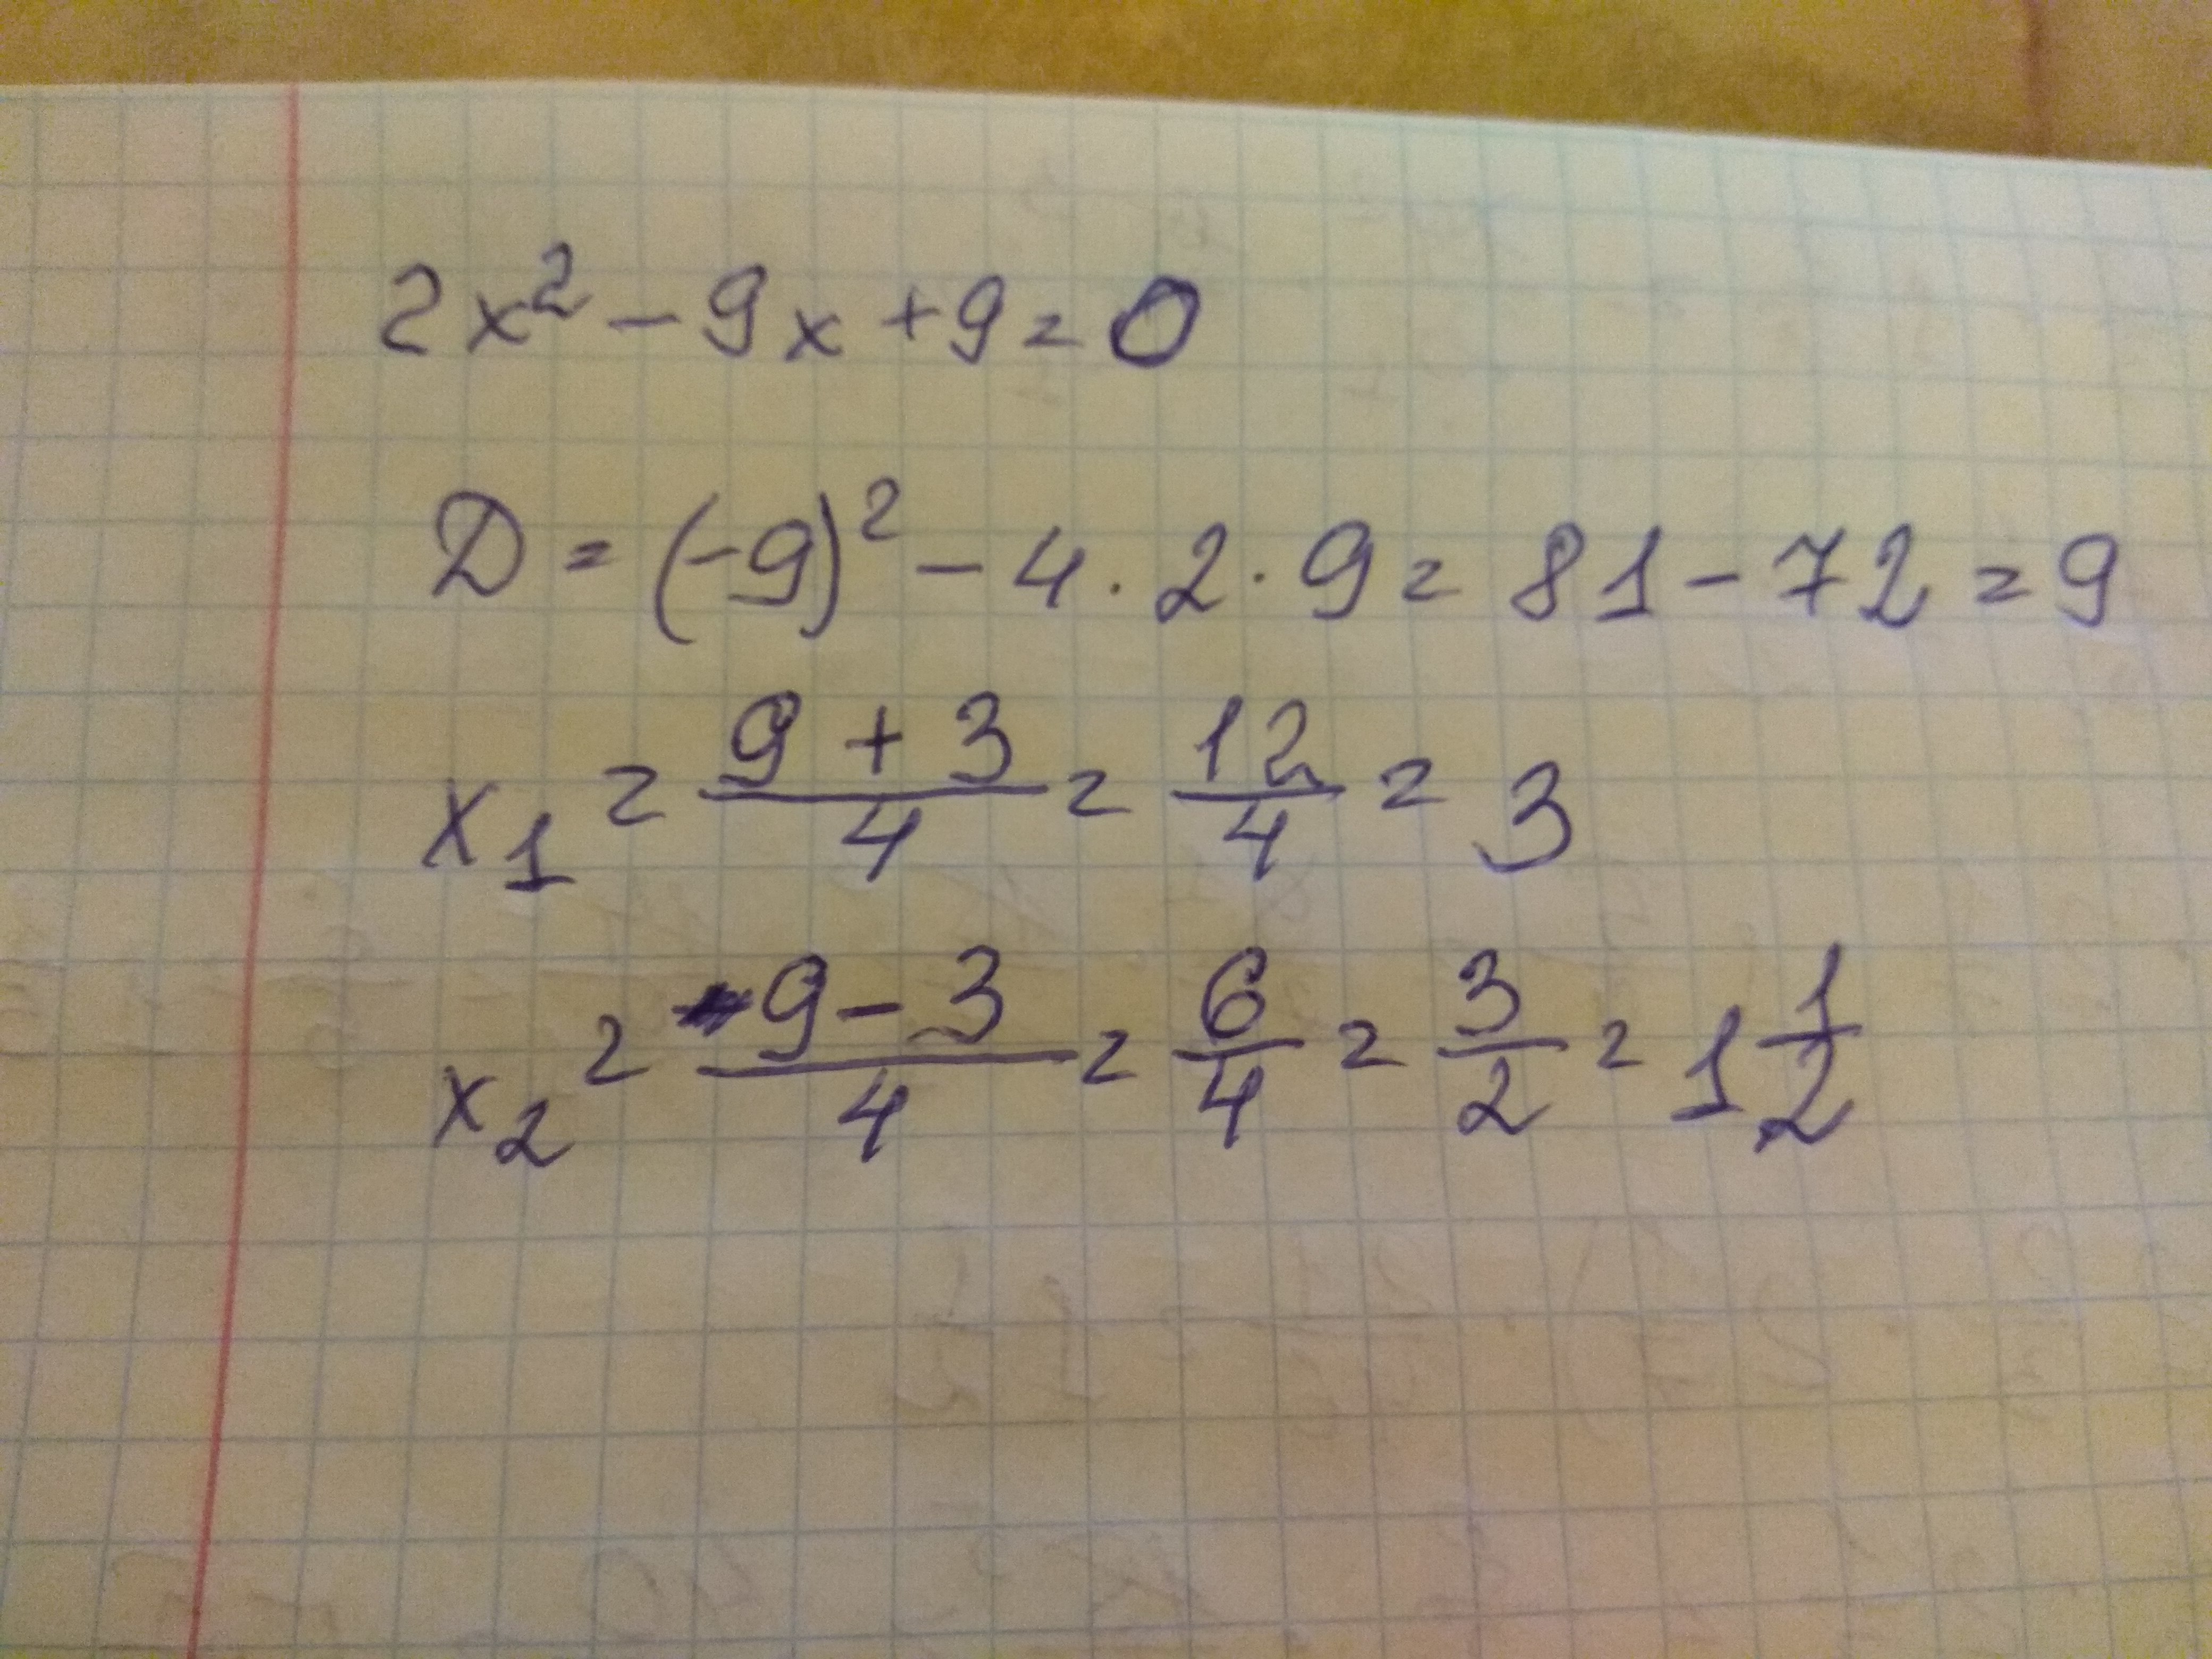 2x² - 9x + 9 = 0
D = (-9)² - 4 · 2 · 9 = 81 - 72 = 9
x₁ = (9 + 3)/4 = 12/4 = 3
x₂ = (9 - 3)/4 = 6/4 = 3/2 = 1 1/2